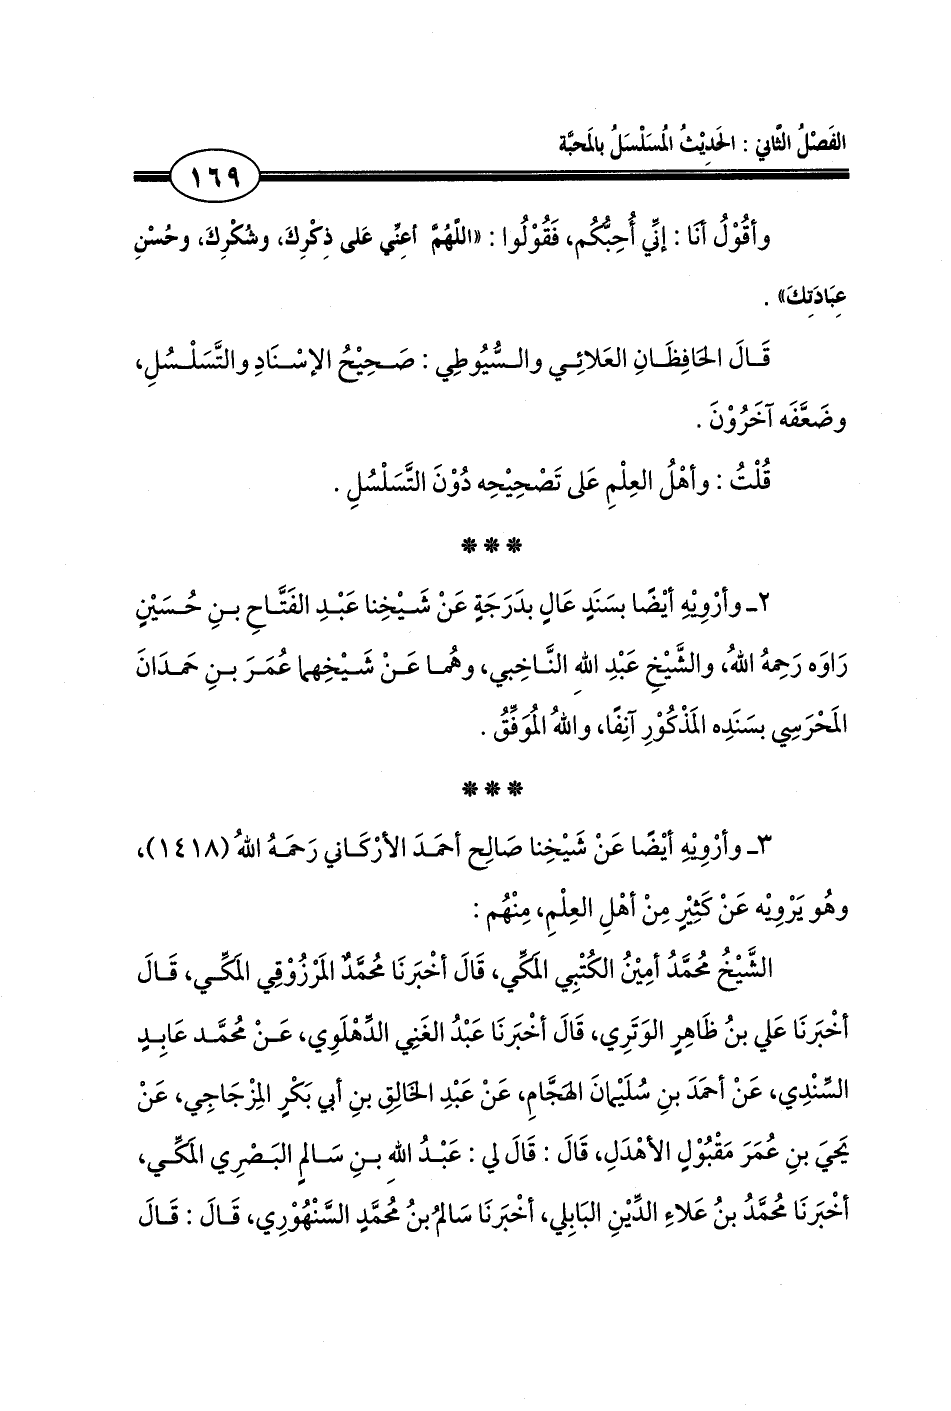 الفَصْلُ الثَّاني : الحَدِيْثُ المُسَلْسَلُ بالمَحبَّة
١٦٩
وأقُوْلُ أنَا : إنِّي أُحِبُّكُم، فَقُوْلُوا : «اللَّهُمَّ أعِنِّي عَلى ذِكْرِكَ، وشُكْرِكَ، وحُسْنِ
عِبَادَتِكَ» .
قَالَ الحَافِظَانِ العَلائِي والسُّيُوطِي : صَحِيْحُ الإسْنَادِ والتَّسَلْسُلِ،
وضَعَّفَه آخَرُوْنَ .
قُلْتُ : وأهْلُ العِلْمِ عَلى تَصْحِيْحِه دُوْنَ التَّسَلْسُلِ .
***
٢ـ وأرْوِيْهِ أيْضًا بسَنَدٍ عَالٍ بدَرَجَةٍ عَنْ شَيْخِنا عَبْدِ الفَتَّاحِ بنِ حُسَيْنٍ
رَاوَه رَحِمهُ اللهُ، والشَّيْخِ عَبْدِ اللهِ النَّاخِبي، وهُمَا عَنْ شَيْخِهِما عُمَرَ بنِ حَمدَانَ
المَحْرَسِي بسَنَدِه المَذْكُوْرِ آنِفًا، واللهُ المُوَفِّقُ .
***
٣ـ وأرْوِيْهِ أيْضًا عَنْ شَيْخِنا صَالِحِ أحمَدَ الأرْكَاني رَحمَهُ اللهُ (١٤١٨)،
وهُو يَرْوِيْه عَنْ كَثِيْرٍ مِنْ أهْلِ العِلْمِ، مِنْهُم :
الشَّيْخُ مُحمَّدُ أمِيْنُ الكُتْبِي المَكِّي، قَالَ أخْبَرنَا مُحمَّدٌ المَرْزُوْقي المَكِّي، قَالَ
أخْبَرنَا عَلي بنُ ظَاهِرٍ الوَتَرِي، قَالَ أخْبَرنَا عَبْدُ الغَنِي الدِّهْلَوِي، عَنْ مُحمَّد عَابِدٍ
السِّنْدِي، عَنْ أحمَدَ بنِ سُلَيْمانَ الهَجَّامِ، عَنْ عَبْدِ الخَالِقِ بنِ أبي بَكْرٍ المِزْجَاجِي، عَنْ
يَحيَى بنِ عُمَرَ مَقْبُوْلٍ الأهْدَلِ، قَالَ : قَالَ لي : عَبْدُ اللهِ بنِ سَالمٍ البَصْرِي المَكِّي،
أخْبَرنَا مُحمَّدُ بنُ عَلاءِ الدِّيْنِ البَابِلي، أخْبَرنَا سَالمُ بنُ مُحمَّدٍ السَّنْهُوْرِي، قَالَ : قَالَ